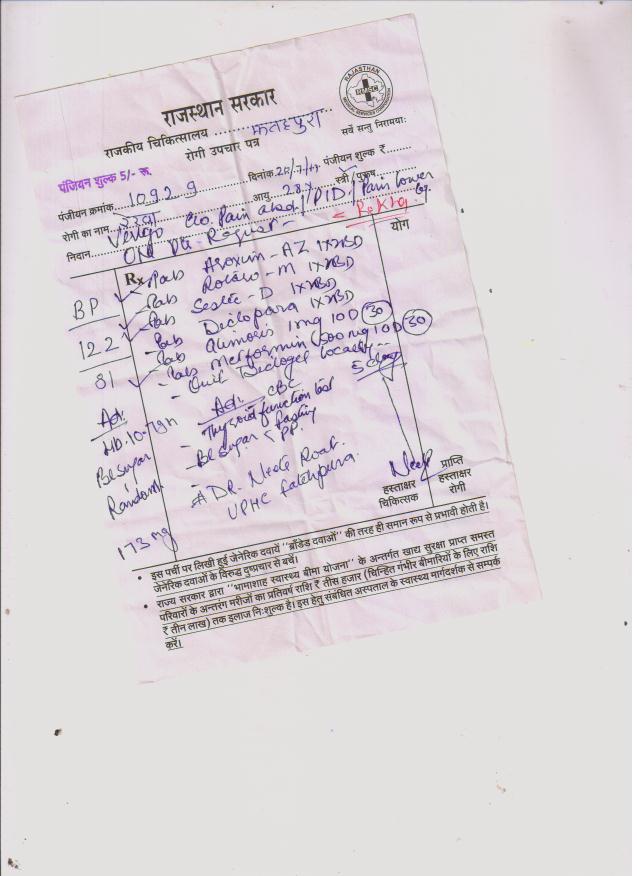 राजस्थान सरकार
RAJASTHAN
MEDICAL SERVICES CORPORATION
राजकीय चिकित्सालय ........ फतहपुरा
सर्वे सन्तु निरामयाः
रोगी उपचार पत्र
पंजियन शुल्क 5/- रू.
पंजीयन क्रमांक. 10929 दिनांक. पंजीयन शुल्क ₹
रोगी का नाम आयु. 28 स्त्री / पुरूष
Rekha
निदान Vertigo c/o. Pain abd / PID / Pain lower
On Pt. Request -
Rx योग
BP
122
81
Tab - AZ 1x BD
Tab - M 1x BD
Tab - D 1x BD
Tab Diclopara 1x BD
Tab 1mg 1 OD 30
Tab Metformin 500 mg 1 OD 30
- Oint Diclogel locally
5 days
Adv.
Hb. 10.7 gm
Bl sugar
Random
173 mg
Adv. CBC
- Thyroid function test
- Bl sugar < fasting
PP.
# DR.
UPHC Fatehpura.
हस्ताक्षर चिकित्सक
प्राप्ति हस्ताक्षर रोगी
• इस पर्ची पर लिखी हुई जेनेरिक दवायें "ब्राँडेड दवाओं" की तरह ही समान रूप से प्रभावी होती है।
जेनेरिक दवाओं के विरुद्ध दुष्प्रचार से बचें।
• राज्य सरकार द्वारा "भामाशाह स्वास्थ्य बीमा योजना" के अन्तर्गत खाद्य सुरक्षा प्राप्त समस्त
परिवारों के अन्तरंग मरीजों का प्रतिवर्ष राशि ₹ तीस हजार (चिन्हित गंभीर बीमारियों के लिए राशि
₹ तीन लाख) तक इलाज निःशुल्क है। इस हेतु संबंधित अस्पताल के स्वास्थ्य मार्गदर्शक से सम्पर्क
करें।